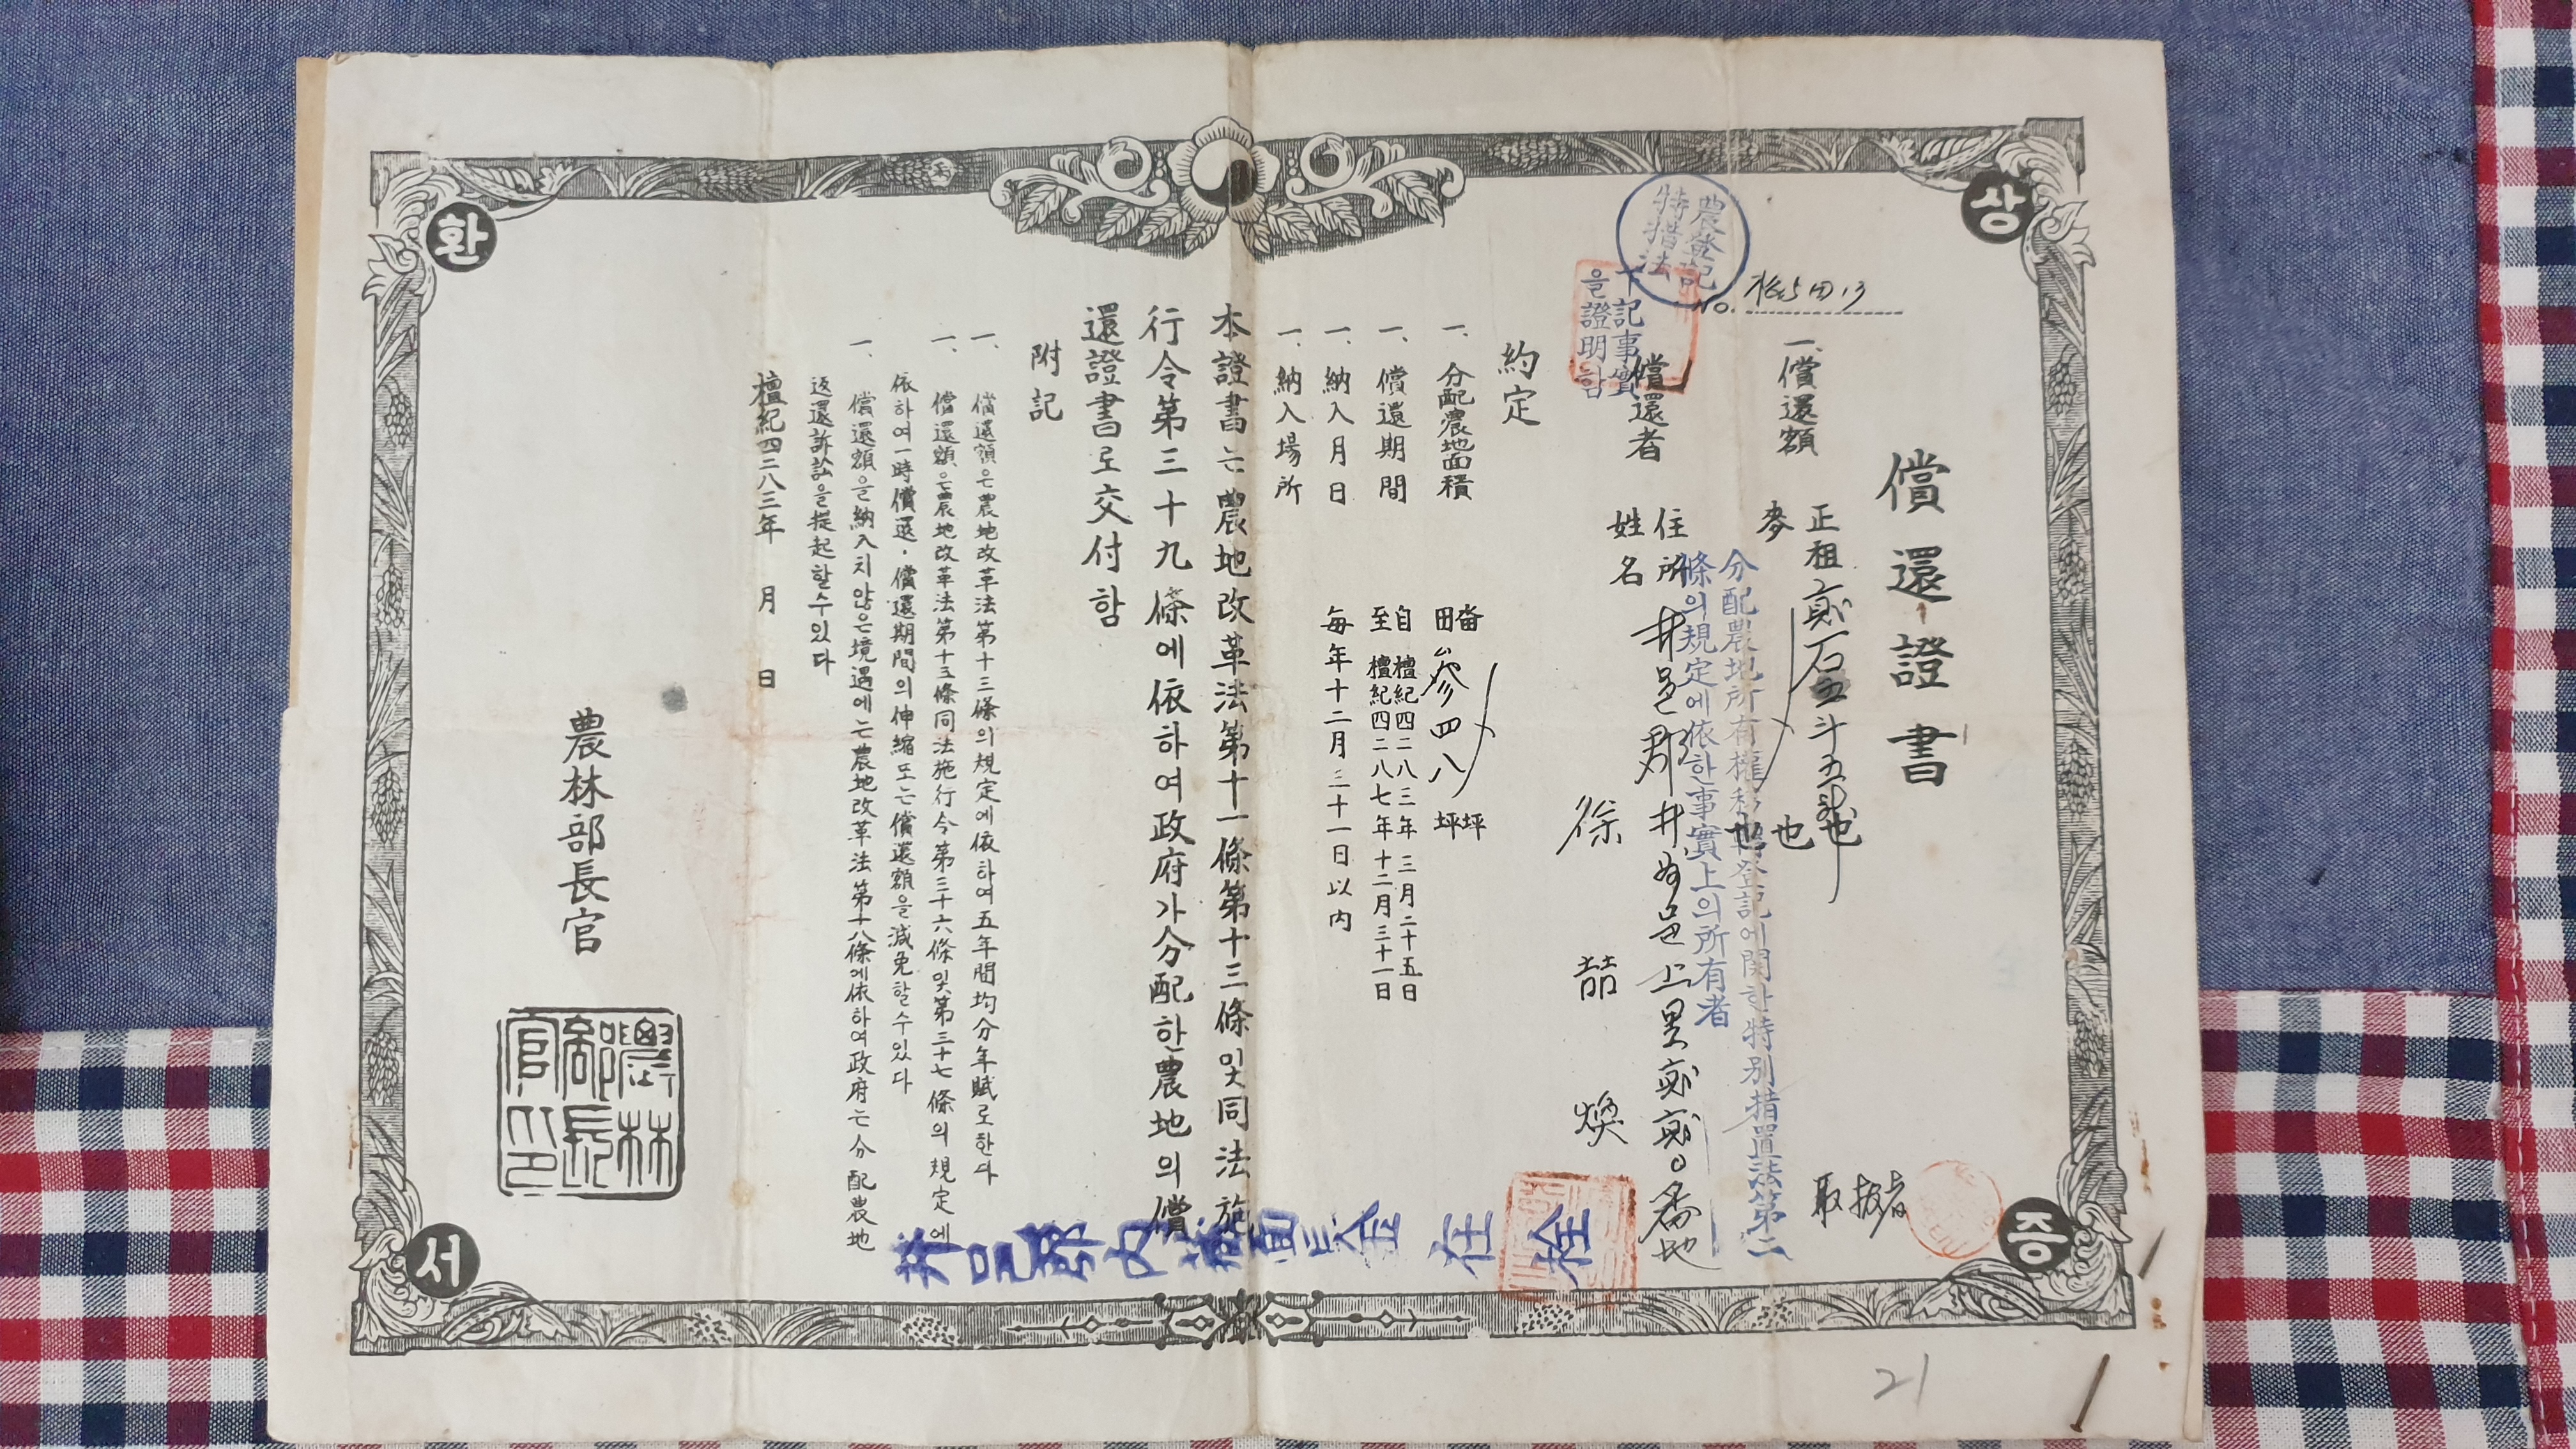 상
환
증
서
償還證書
No.
一、償還額
正租 貳石五斗五升也
麥 也
也
償還者
住所 井邑郡井州邑上里
番地
姓名 徐喆煥
農登記
特措法
下記事實
을證明함
分配農地所有權移轉登記에関한特別措置法第二
條의規定에依한事實上의所有者
取扱者
約定
一、分配農地面積
畓 坪
田 參四八坪
一、償還期間
自檀紀四二八三年三月二十五日
至檀紀四二八七年十二月三十一日
一、納入月日 每年十二月三十一日以内
一、納入場所
本證書는農地改革法第十一條第十三條및同法施
行令第三十九條에依하여政府가分配한農地의償
還證書로交付함
附記
一、償還額은農地改革法第十三條의規定에依하여五年間均分年賦로한다
一、償還額은農地改革法第十三條同法施行令第三十六條및第三十七條의規定에
依하여一時償還·償還期間의伸縮또는償還額을減免할수있다
一、償還額을納入치않은境遇에는農地改革法第十八條에依하여政府는分配農地
返還訴訟을提起할수있다
檀紀四二八三年 月 日
農林部長官
農林
部長
官印
21